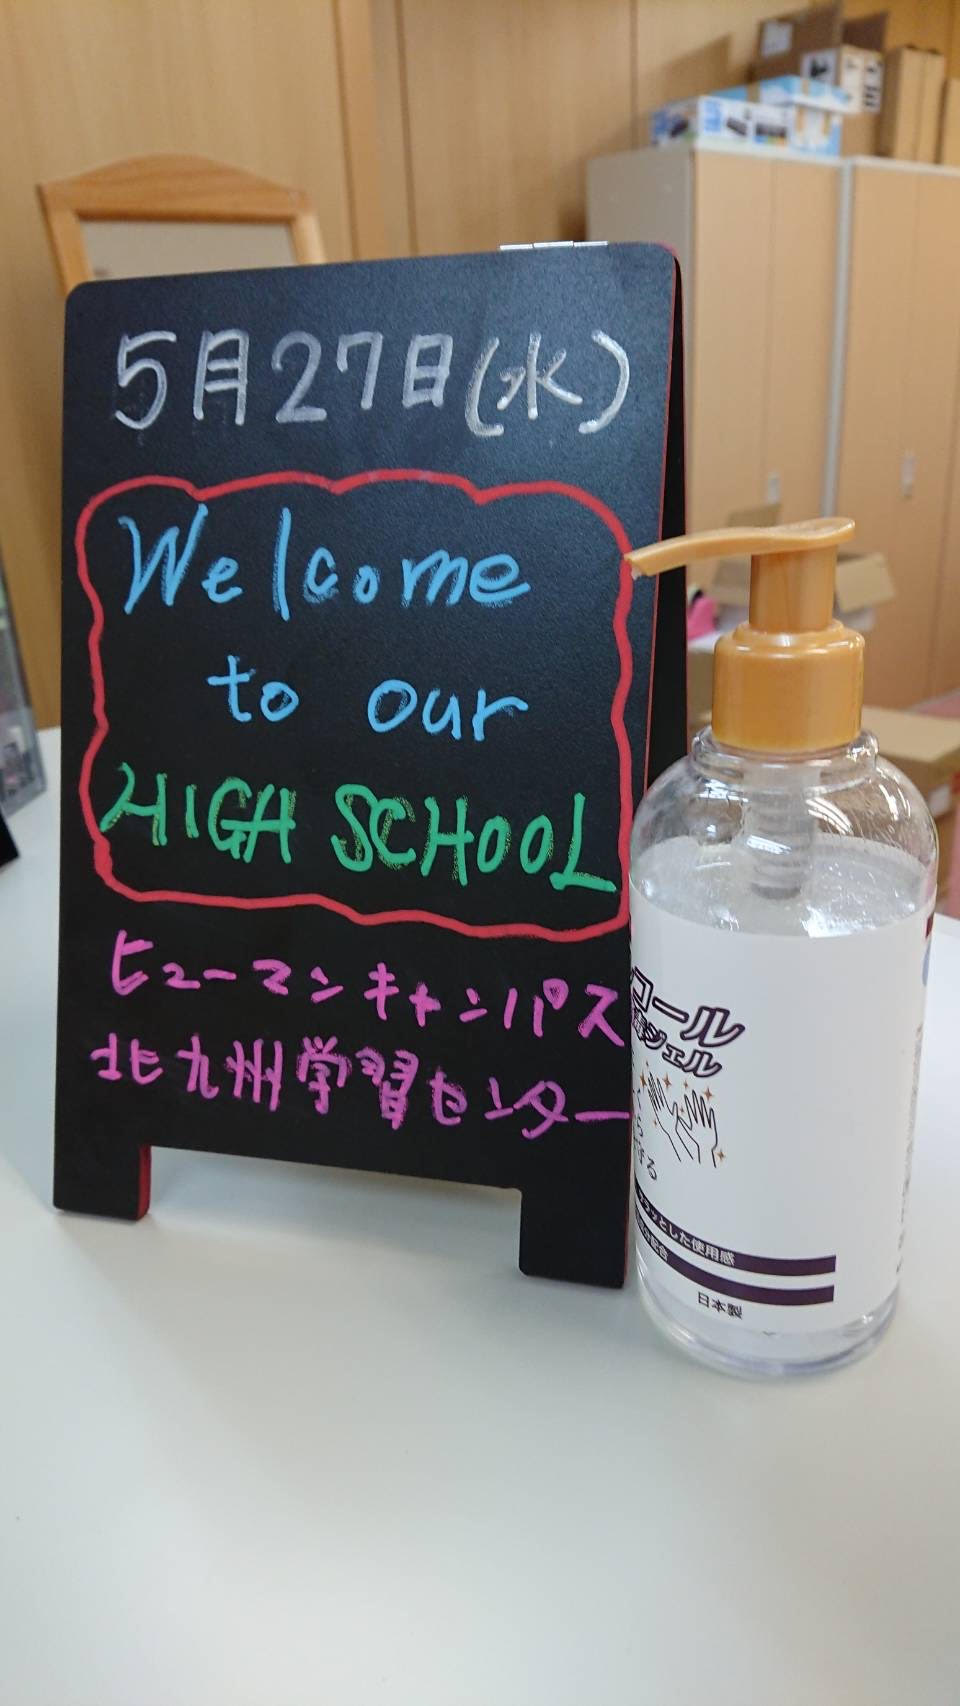 5月27日(水)
Welcome
to our
HIGH SCHOOL
ヒューマンキャンパス
北九州学習センター
コール
ジェル
とした使用感
配合
日本製